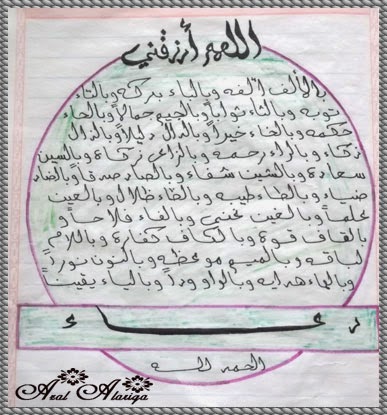 اللهم أرزقني
بالألف ألفه وبالباء بركه وبالتاء
توبه وبالثاء ثوابا وبالجيم جمالا وبالحاء
حكمه وبالخاء خيرا وبالدال دليلا وبالذال
ذكاء وبالراء رحمه وبالزاى زكاء وبالسين
سعادة وبالشين شفاء وبالصاد صدقا وبالضاد
ضياء وبالطاء طيب وبالظاء ظلال وبالعين
علما وبالغين غنى وبالفاء فلاحا و
بالقاف قوة وبالكاف كفارة وباللام
لباقه وبالميم موعظه وبالنون نورا
وبالهاء هدايه وبالواو ودا وبالياء يقينا
دعاء
الحمد لله